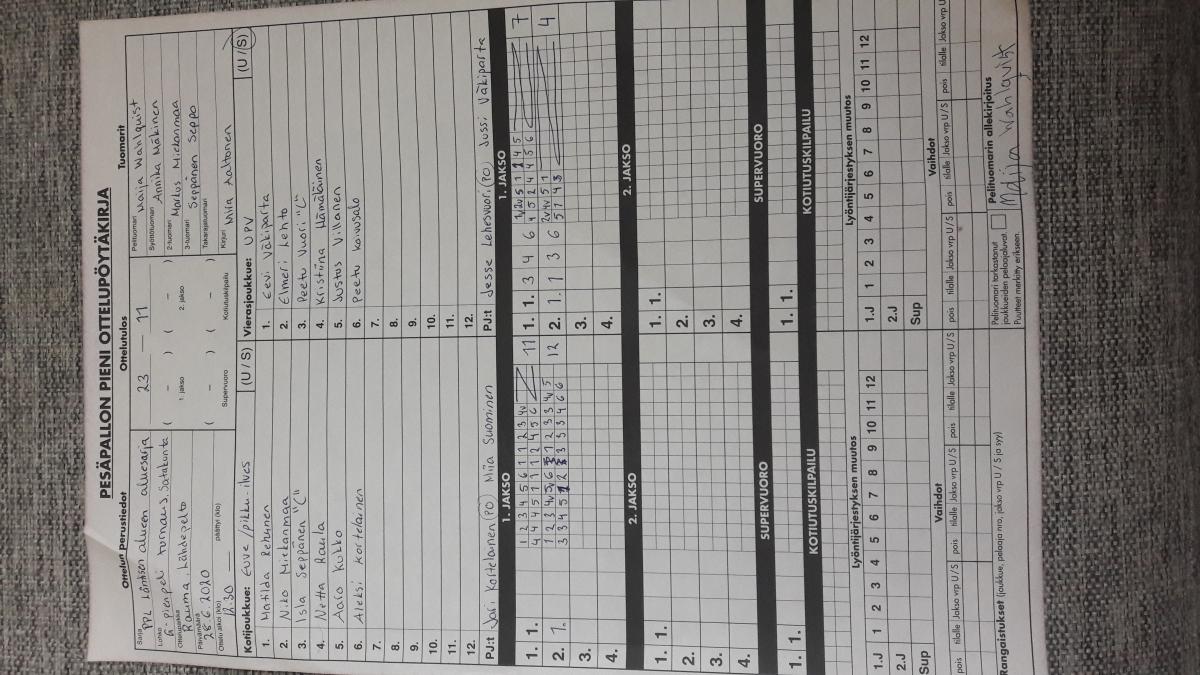 PESÄPALLON PIENI OTTELUPÖYTÄKIRJA
Ottelun Perustiedot
Sarja
PPL Läntisen alueen aluesarja
Lohko
G-pienpeli turnaus, Satakunta
Ottelupaikka
Rauma, Lähdepelto
Päivämäärä
28.6.2020
Ottelu alkoi (klo) päättyi (klo)
12.30
Ottelutulos
23 – 11
( – ) ( – )
1. jakso 2. jakso
( – ) ( – )
Supervuoro Kotiutuskilpailu
Tuomarit
Pelituomari
Maija Wahlquist
Syöttötuomari
Annika Mäkinen
2-tuomari
Markus Miekanmaa
3-tuomari
Seppänen Seppo
Takarajatuomari
Kirjuri
Miira Aaltonen
Kotijoukkue: Euve/pikku-ilves (U / S)
1. Matilda Rehunen
2. Niko Miekanmaa
3. Isla Seppänen "C"
4. Netta Raula
5. Aaro Kukko
6. Aleksi Kortelainen
7.
8.
9.
10.
11.
12.
PJ:t Jari Kortelainen (PO) Miia Suominen
Vierasjoukkue: UPV (U / S)
1. Eevi Väkiparta
2. Elmeri Lehto
3. Peetu Vuori "C"
4. Kristiina Hämäläinen
5. Justus Villanen
6. Peetu Koivusalo
7.
8.
9.
10.
11.
12.
PJ:t Jesse Lehesvuori (PO) Jussi Väkiparta
1. JAKSO 1. JAKSO
1. 1. 11 1. 1. 3 4 6 7
2. 1. 12 2. 1. 1 3 6 4
3. 3.
4. 4.
2. JAKSO 2. JAKSO
1. 1. 1. 1.
2. 2.
3. 3.
4. 4.
SUPERVUORO SUPERVUORO
1. 1. 1. 1.
KOTIUTUSKILPAILU KOTIUTUSKILPAILU
Lyöntijärjestyksen muutos Lyöntijärjestyksen muutos
1.J 1 2 3 4 5 6 7 8 9 10 11 12 1.J 1 2 3 4 5 6 7 8 9 10 11 12
2.J 2.J
Sup Sup
Vaihdot Vaihdot
pois tilalle Jakso vrp U/S pois tilalle Jakso vrp U/S pois tilalle Jakso vrp U/S
pois tilalle Jakso vrp U/S pois tilalle Jakso vrp U/S pois tilalle Jakso vrp U/S
Rangaistukset (joukkue, pelaaja nro, jakso vrp U / S ja syy)
Pelituomari tarkastanut
joukkueiden pelaajaluvat.
Puutteet merkitty erikseen.
Pelituomarin allekirjoitus
Maija Wahlqvist